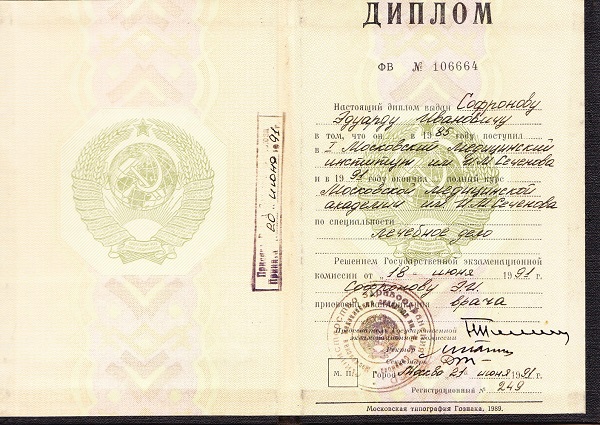 ДИПЛОМ
ФВ № 106664
Настоящий диплом выдан Софронову
Эдуарду Ивановичу
в том, что он в 1985 году поступил
в I Московский Медицинский
институт им. И.М. Сеченова
и в 1991 году окончил полный курс
Московской Медицинской
академии им. И.М. Сеченова
по специальности
лечебное дело
Решением Государственной экзаменационной
комиссии от „18“ июня 1991 г.
Софронову Э.И.
врача
Председатель Государственной
экзаменационной комиссии
Ректор
Секретарь
М. П. Город Москва 21 июня 1991 г.
Регистрационный № 249
Московская типография Гознака, 1989.
20 июня 1991